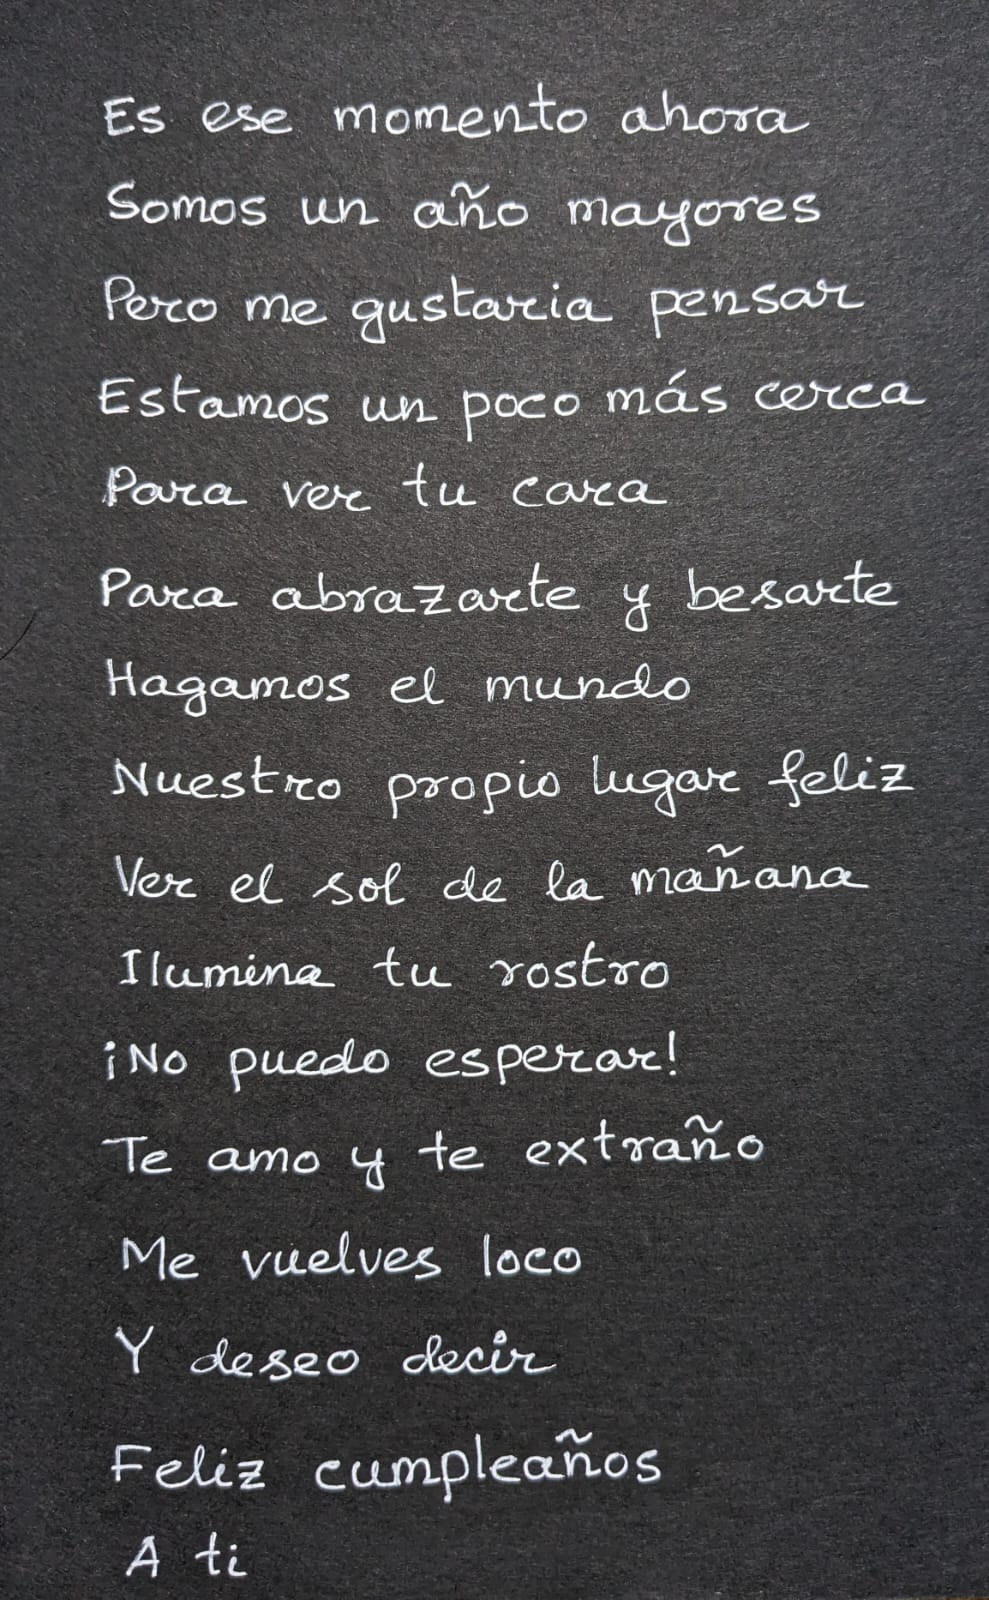 Es ese momento ahora
Somos un año mayores
Pero me gustaria pensar
Estamos un poco más cerca
Para ver tu cara
Para abrazarte y besarte
Hagamos el mundo
Nuestro propio lugar feliz
Ver el sol de la mañana
Ilumina tu rostro
¡No puedo esperar!
Te amo y te extraño
Me vuelves loco
Y deseo decir
Feliz cumpleaños
A ti